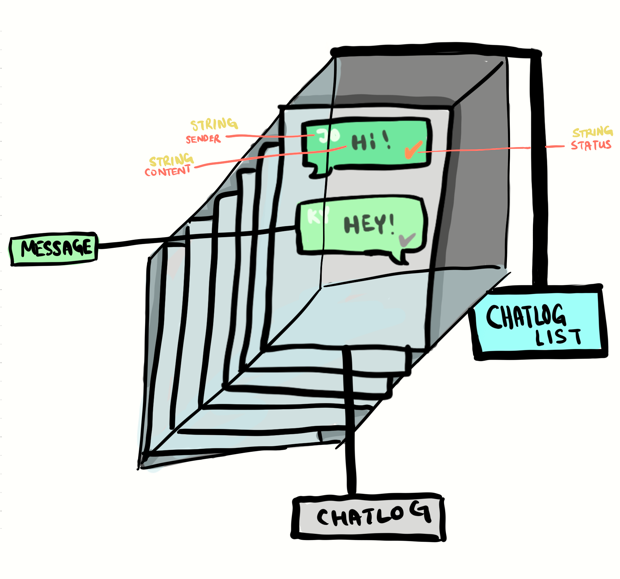 STRING
SENDER
JO
Hi!
STRING
CONTENT
STRING
STATUS
KY
HEY!
MESSAGE
CHATLOG
LIST
CHATLOG